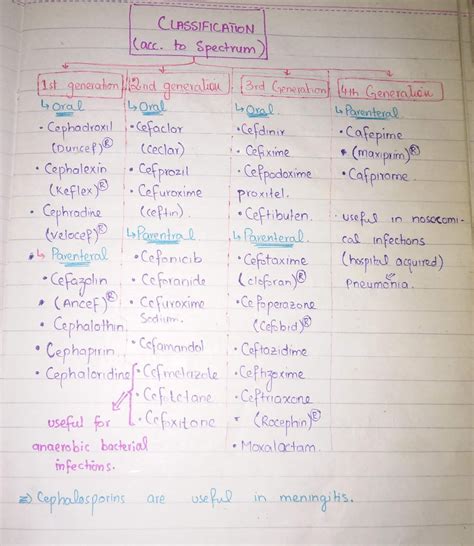 CLASSIFICATION
(acc. to Spectrum)
1st generation
↳ Oral
• Cephadroxil
(Duricef)®
• Cephalexin
(Keflex)®
• Cephradine
(velocef)®
• ↳ Parenteral
• Cefazolin
• (Ancef)®
• Cephalothin.
• Cephapirin.
• Cephaloridine
2nd generation
↳ Oral
• Cefaclor
(ceclar)
• Cefprozil
• Cefuroxime
(ceftin)
↳ Parentral
• Cefonicib
• Ceforanide
• Cefuroxime
Sodium.
• Cefamandol
• Cefmetazole
• Cefotetane
• Cefoxitone
useful for
anaerobic bacterial
infections.
3rd Generation
↳ Oral
• Cefdinir
• Cefixime
• Cefpodoxime
proxitel.
• Ceftibuten.
↳ Parenteral
• Cefotaxime
(cloforan)®
• Cefoperazone
(Cefobid)®
• Ceftazidime
• Ceftizoxime
• Ceftriaxone
• (Rocephin)®
• Moxalactam.
4th Generation
↳ Parenteral
• Cafepime
• (maxipim)®
• Cafpirome.
• useful in nosocomi-
cal infections
(hospital acquired)
pneumonia.
⇒ Cephalosporins are useful in meningitis.